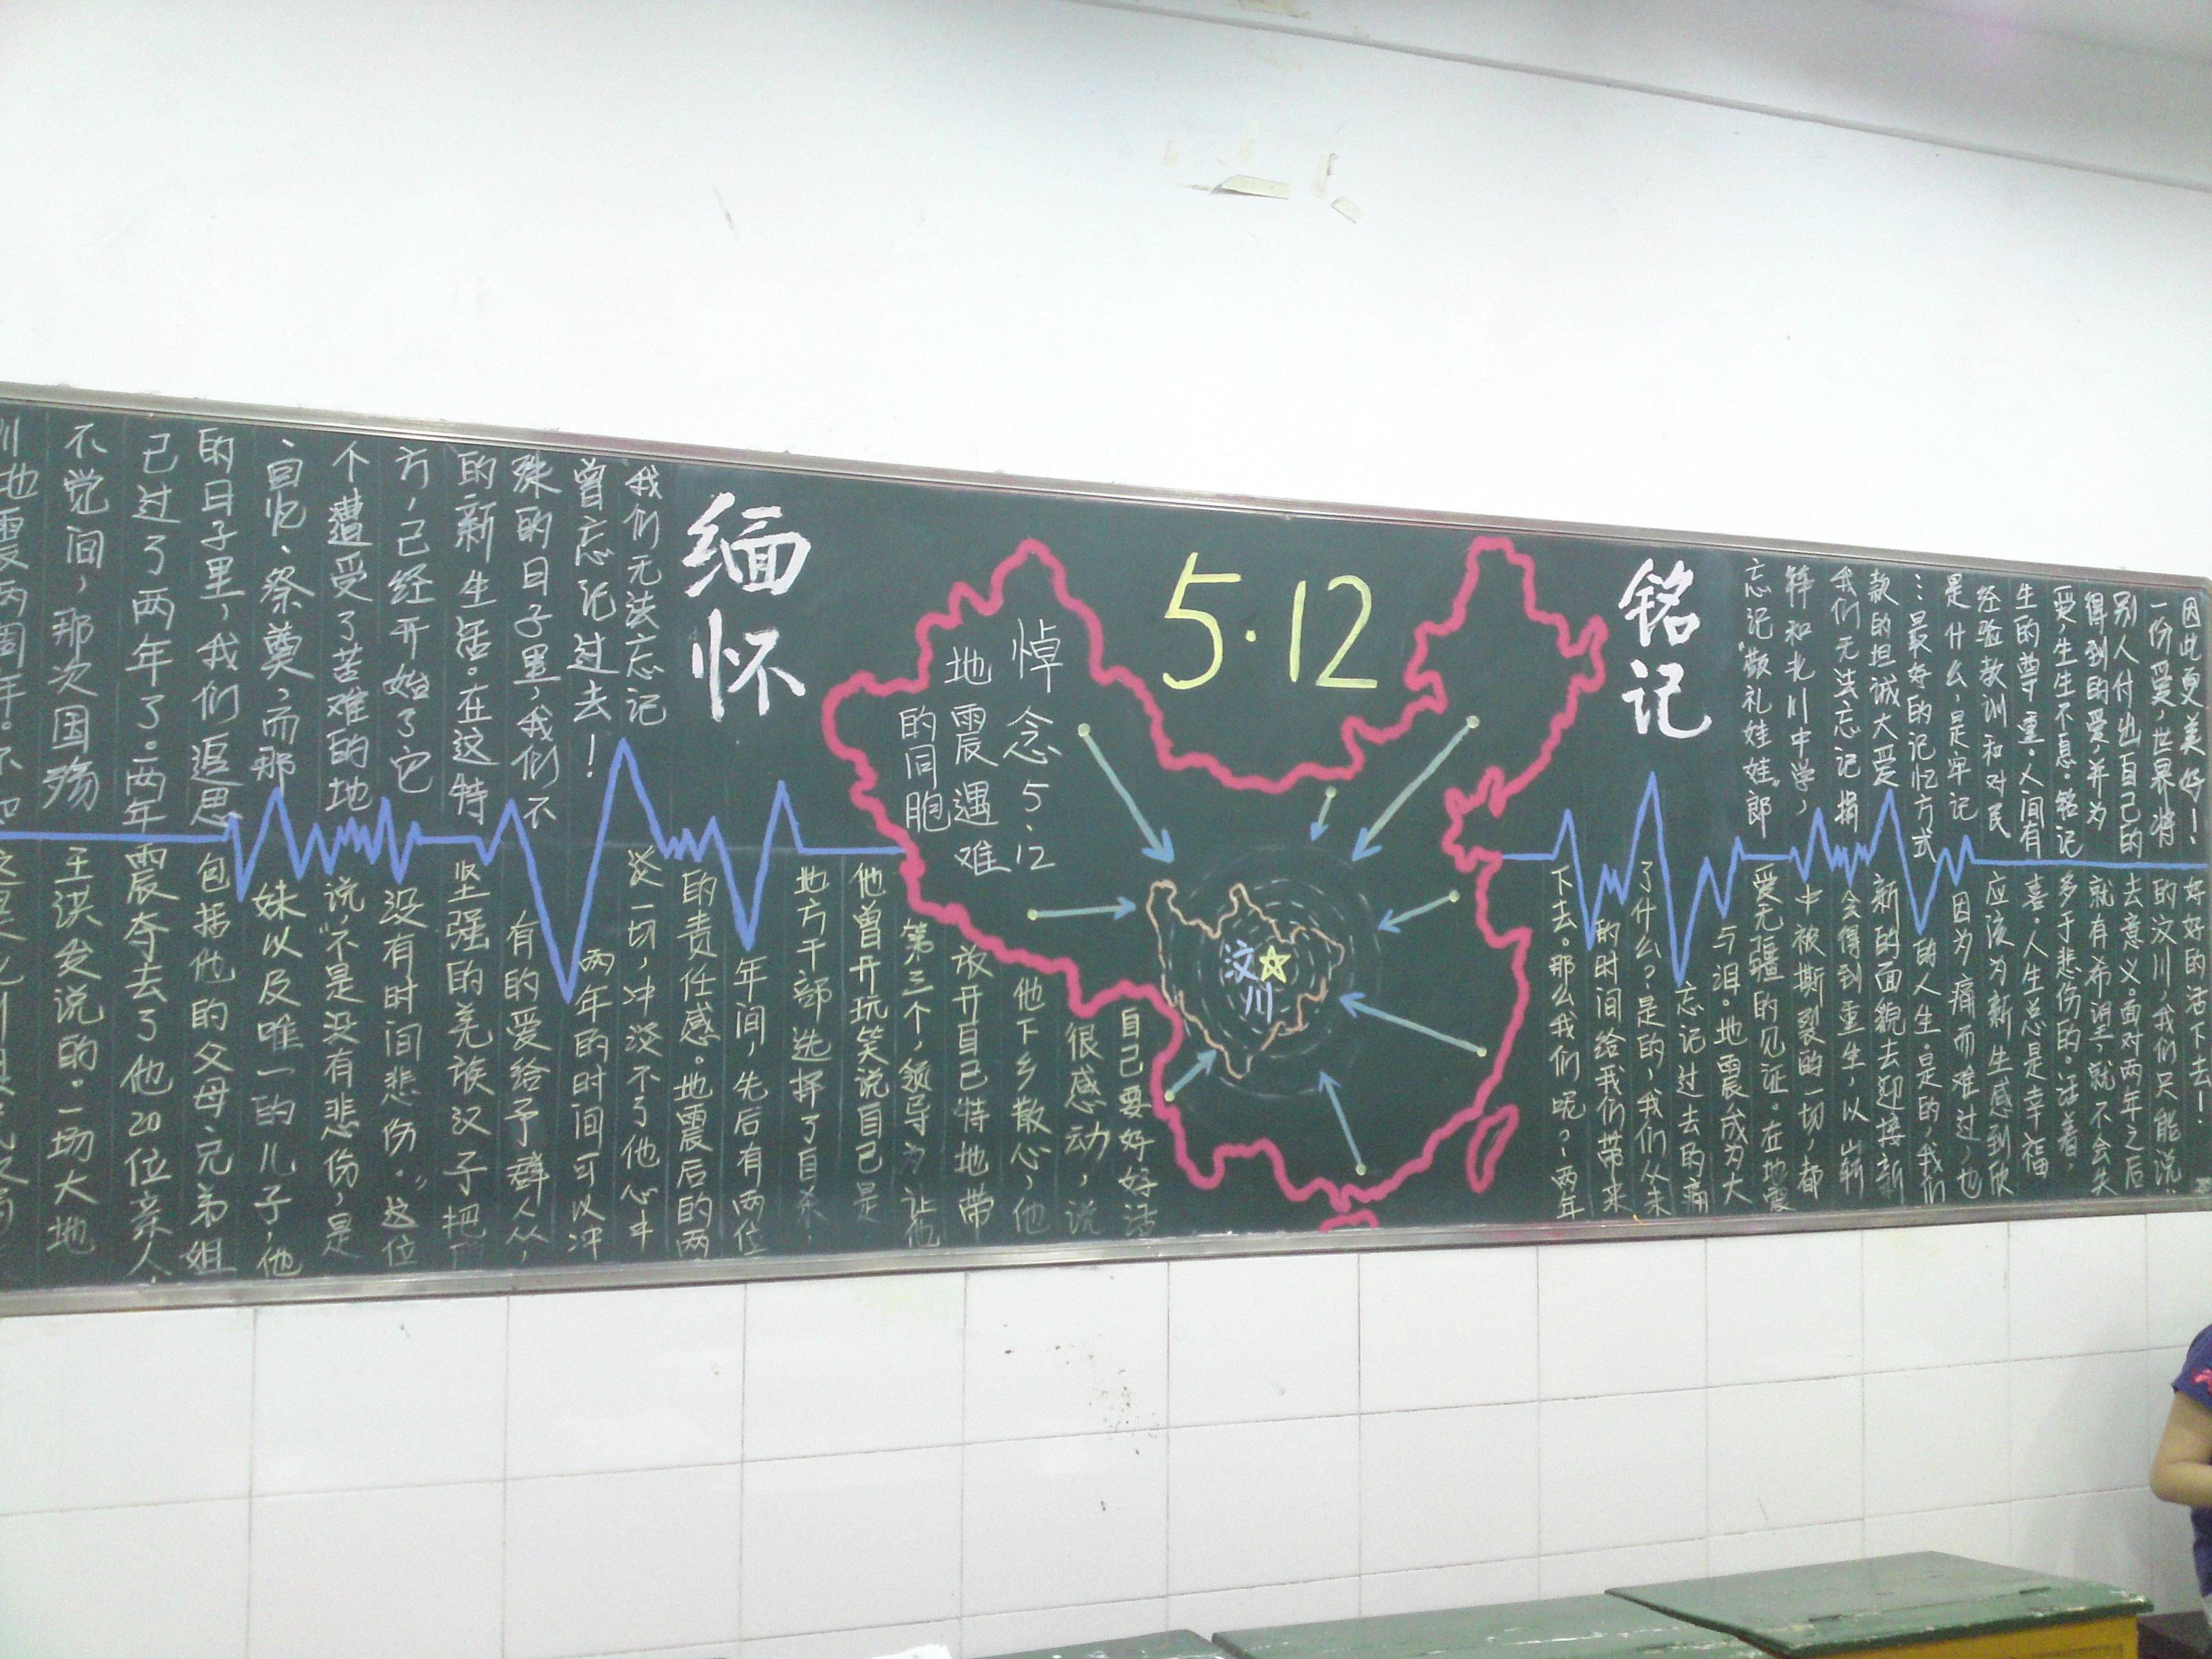 川地震两周年。不
不觉间，那次国殇
已过了两年了。两年
的日子里，我们追思
、回忆、祭奠，而那
个遭受了苦难的地
方，已经开始了它
的新生活。在这特
殊的日子里，我们不
曾忘记过去！
我们无法忘记
缅怀
5·12
悼念5·12
地震遇难
的同胞
汶川
铭记
忘记“敬礼娃娃”郎
铮和北川中学，
我们无法忘记捐
款的坦诚大爱
…最好的记忆方式
是什么，是牢记
经验教训和对民
生的尊重。人间有
爱生生不息。铭记
得到的爱，并为
别人付出自己的
一份爱，世界将
因此更美好！
王洪发说的。一场大地
震夺去了他20位亲人，
包括他的父母、兄弟姐
妹以及唯一的儿子，他
说，“不是没有悲伤，是
没有时间悲伤。”这位
坚强的羌族汉子把所
有的爱给予群众，
两年的时间可以冲
淡一切，冲淡不了他心中
的责任感。地震后的两
年间，先后有两位
地方干部选择了自杀，
他曾开玩笑说自己是
第三个，领导为让他
放开自己特地带
他下乡散心，他
很感动，说
自己要好好活
下去。那么我们呢？两年
的时间给我们带来
了什么？是的，我们从未
忘记过去的痛
与泪。地震成为大
爱无疆的见证。在地震
中被撕裂的一切，都
会得到重生，以崭
新的面貌去迎接新
的人生。是的，我们
因为痛而难过，也
应该为新生感到欣
喜。人生总是幸福
多于悲伤的。活着，
就有希望，就不会失
去意义。面对两年之后
的汶川，我们只能说：
好好的活下去！